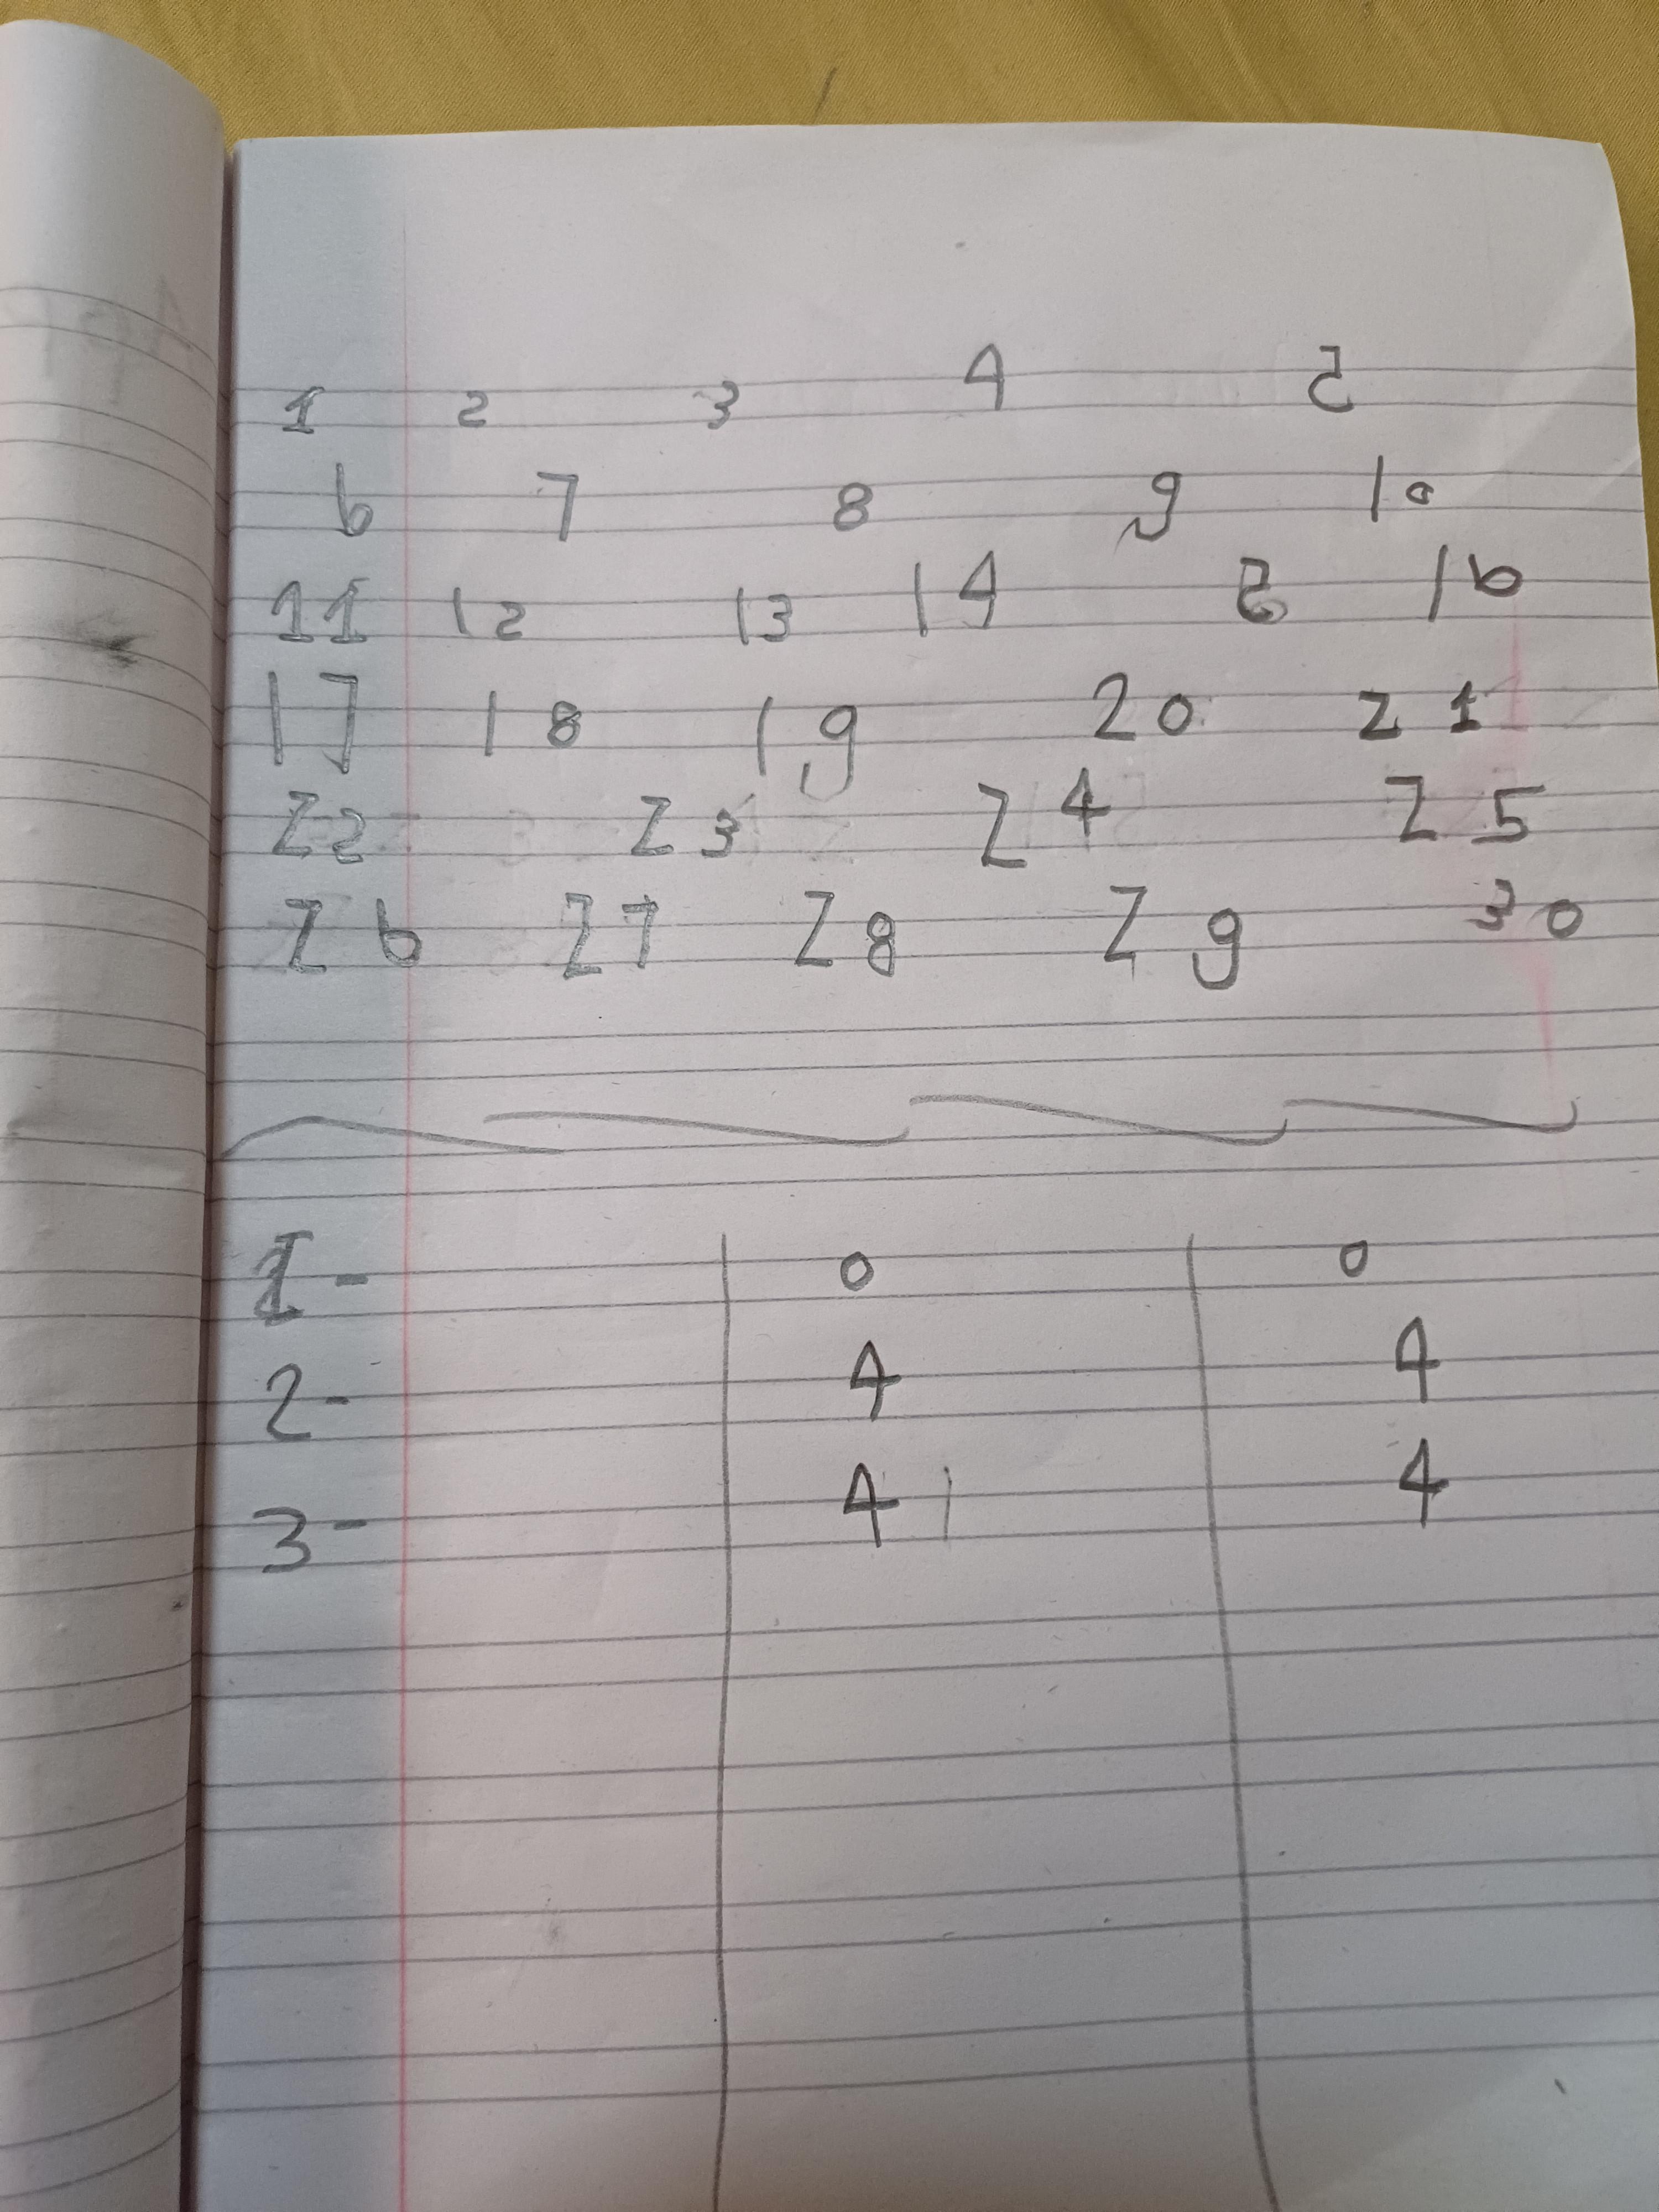 1 2 3 4 5
6 7 8 9 10
11 12 13 14 5 16
17 18 19 20 21
22 23 24 25
26 27 28 29 30
1- 0 0
2- 4 4
3- 4 4